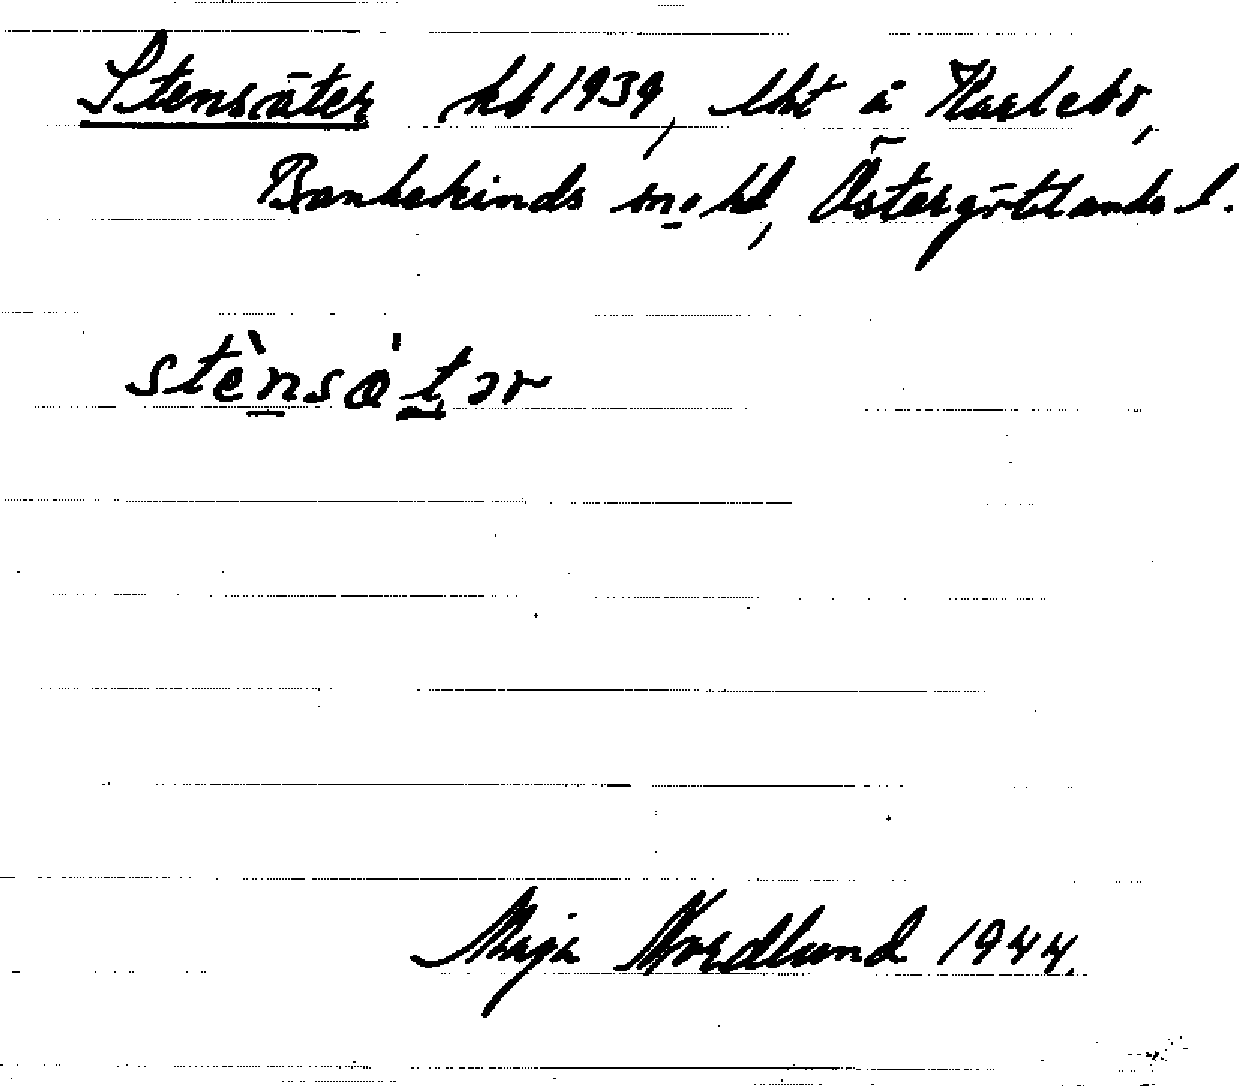 Stensäter kb 1939, lht å Karlebo,
Bankekinds sn o. hd, Östergötlands l.
stènsä'tər
Maja Nordlund 1944.